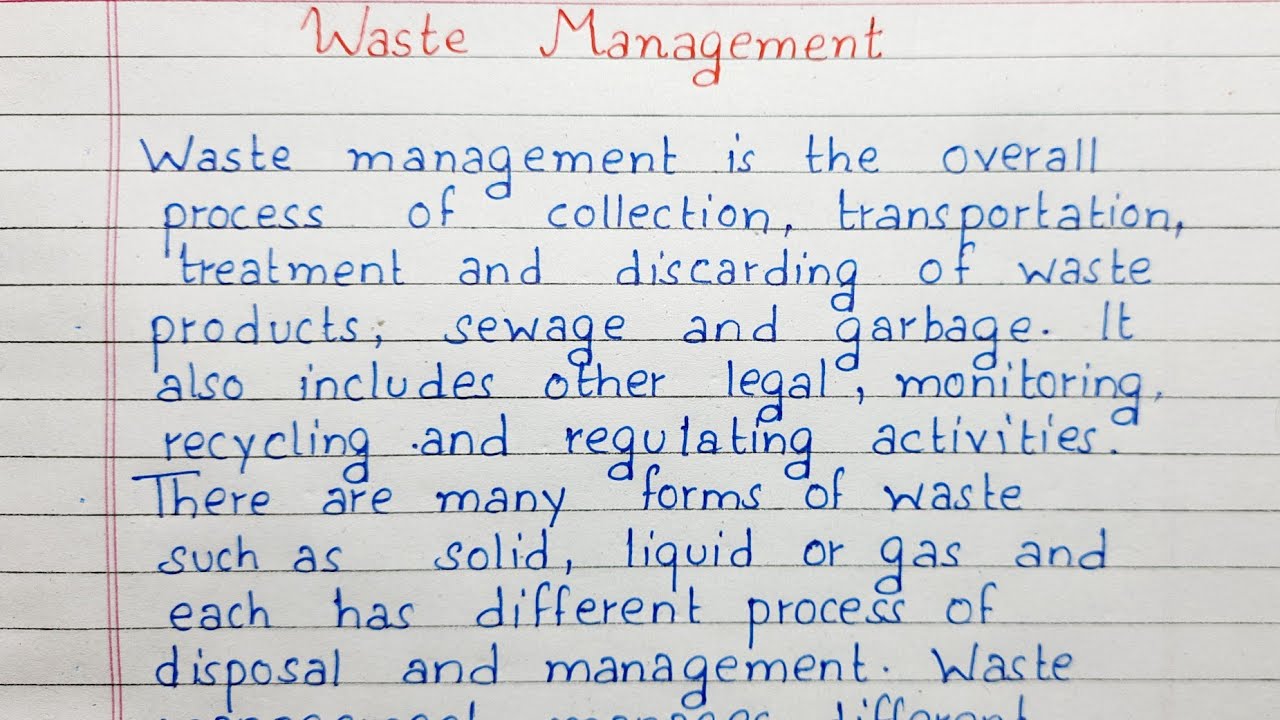 Waste Management
Waste management is the overall
process of collection, transportation,
treatment and discarding of waste
products, sewage and garbage. It
also includes other legal, monitoring,
recycling and regulating activities.
There are many forms of waste
such as solid, liquid or gas and
each has different process of
disposal and management. Waste
different